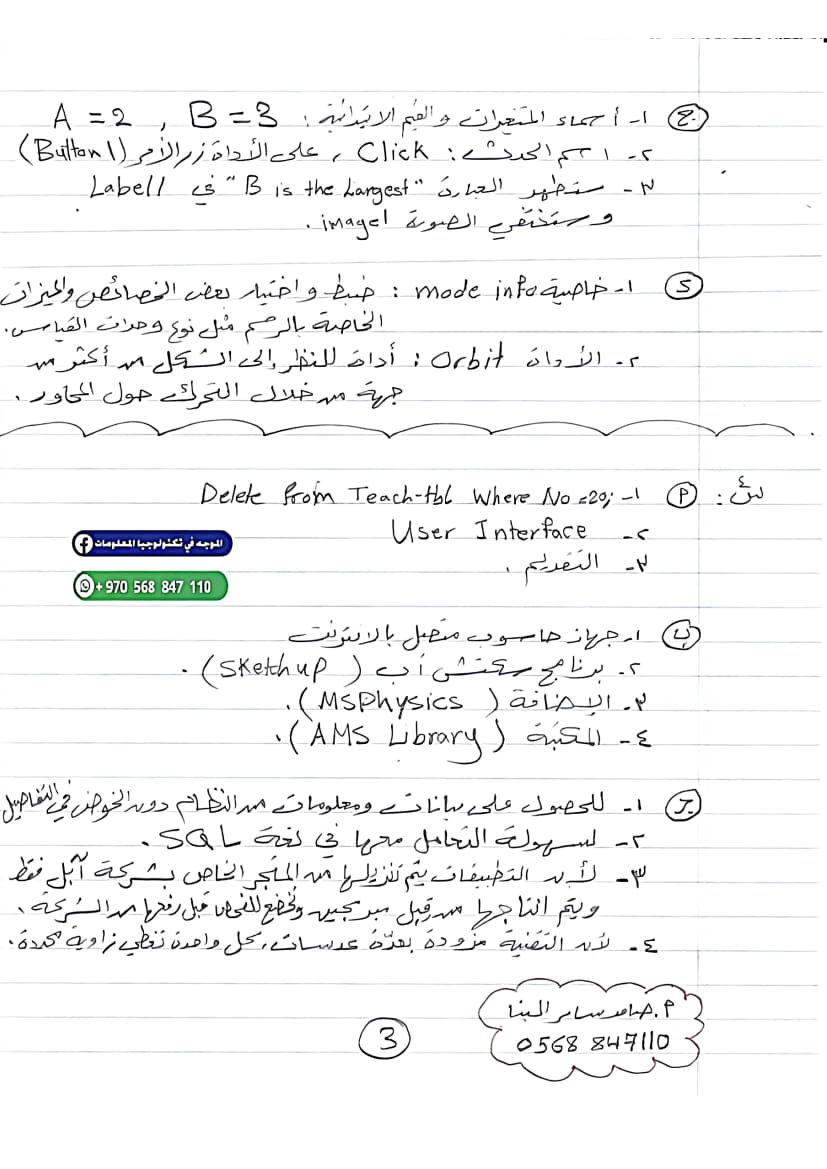 ج) ١- أسماء المتغيرات والقيم الابتدائية : A = 2 , B = 3
٢- اسم الحدث : Click ، على الأداة زر الأمر (Button1)
٣- ستظهر العبارة "B is the Largest" في Label1
وستختفي الصورة image1 .
د) ١- خاصية mode info : ضبط واختيار بعض الخصائص والميزات
الخاصة بالرسم مثل نوع وحدات القياس.
٢- الأداة Orbit : أداة للنظر إلى الشكل من أكثر من
جهة من خلال التحرك حول المحاور .
س٤ : أ) ١- Delete from Teach-tbl Where No =20;
٢- User Interface
٣- التقديم .
الموجه في تكنولوجيا المعلومات
+970 568 847 110
ب) ١- جهاز حاسوب متصل بالانترنت
٢- برنامج سكتش أب (Sketchup) .
٣- الإضافة (MSPhysics) .
٤- المكتبة (AMS Library) .
ج) ١- للحصول على بيانات ومعلومات من النظام دون الخوض في التفاصيل
٢- لسهولة التعامل معها في لغة SQL .
٣- لأن التطبيقات يتم تنزيلها من المتجر الخاص بشركة آبل فقط
ويتم انتاجها من قبل مبرمجين وتخضع للفحص قبل رفعها من الشركة .
٤- لأن التقنية مزودة بعدة عدسات، كل واحدة تغطي زاوية محددة.
م. سامر البنا
0568 847110
3